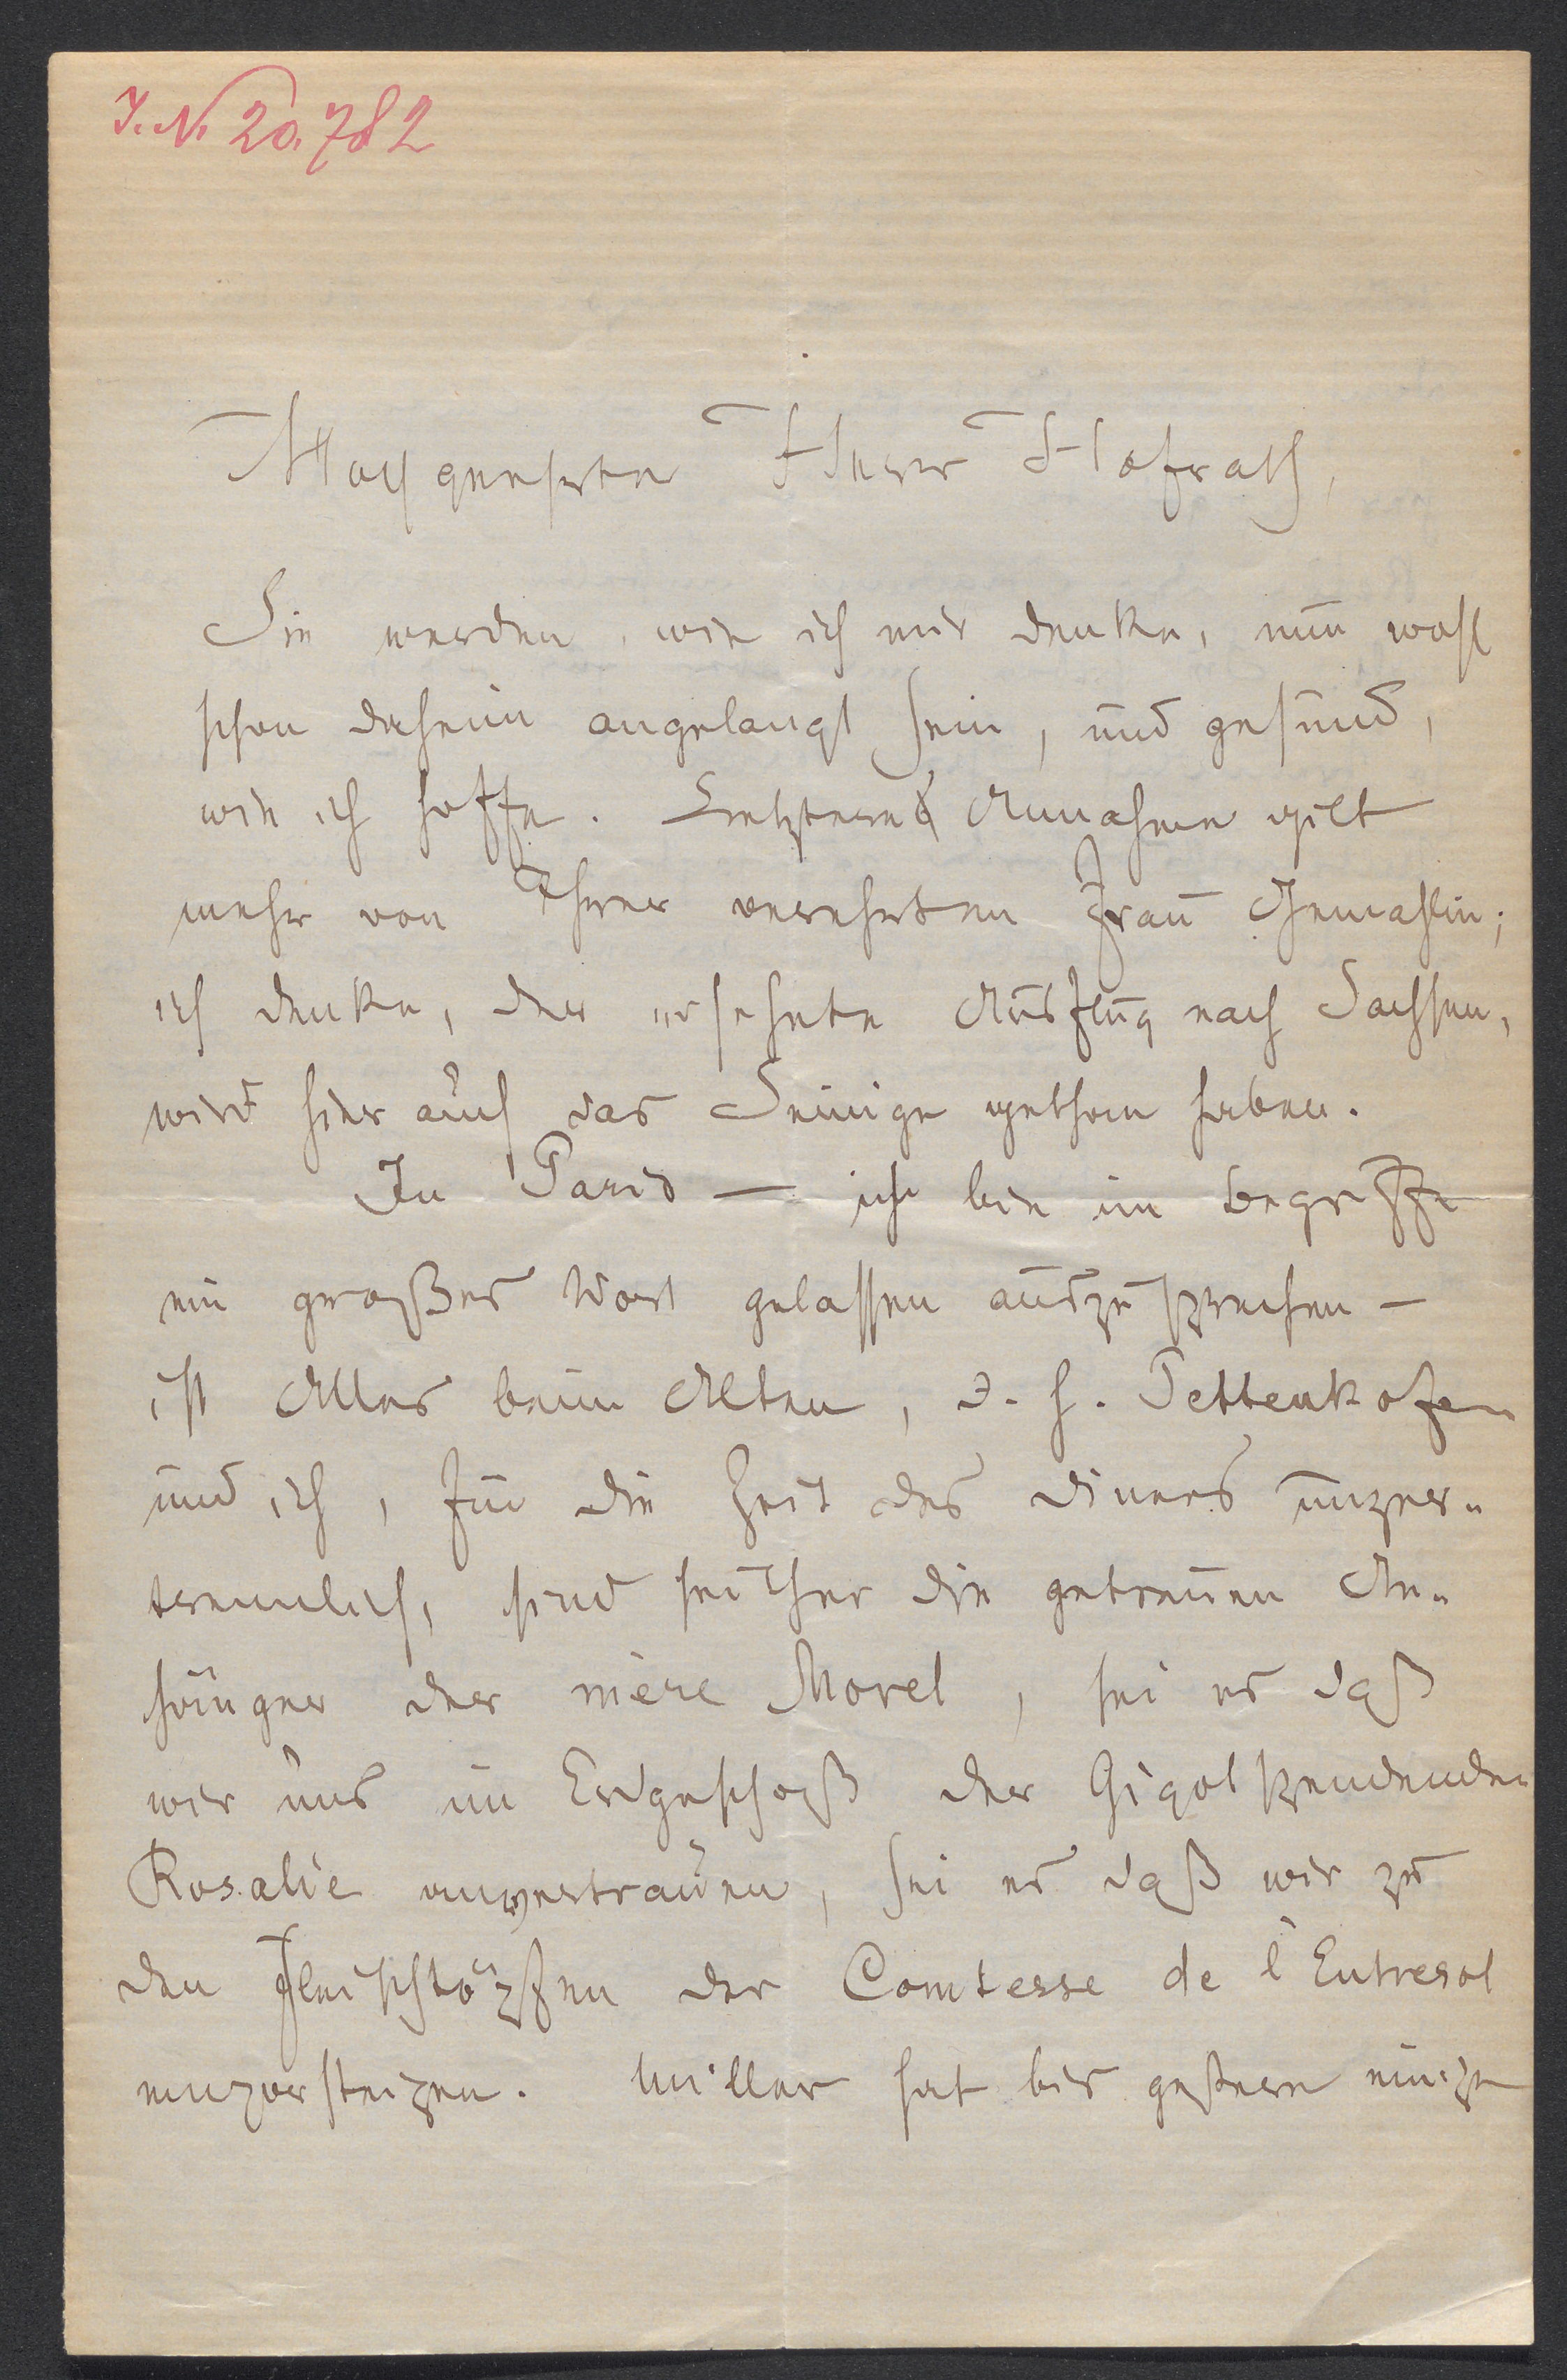 J. N. 20.782
Hochgeehrter Herr Hofrath,
Sie werden, wie ich mir denke, nun wohl
schon daheim angelangt sein, und gesund,
wie ich hoffe. Letztere Annahme gilt
mehr von Ihrer verehrten Frau Gemahlin;
ich denke, der ersehnte Ausflug nach Sachsen,
wird hier auch das Seinige gethan haben.
In Paris — ich bin im Begriffe
ein großes Wort gelassen auszusprechen —
ist Alles beim Alten, d. h. Pettenkofen
und ich, für die Zeit des Diners unzer-
trennlich, sind seither die getreuen An-
hänger der mère Morel, sei es daß
wir uns im Erdgeschoß der Gigotspendenden
Rosalie anvertrauen, sei es daß wir zu
den Fleischtöpfen der Comtesse de l'Entresol
emporsteigen. Miller hat bis gestern einige